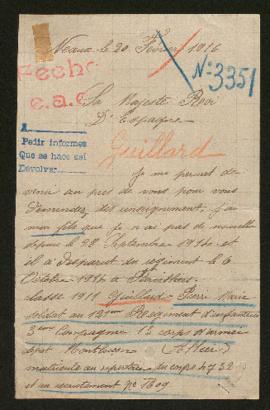 Neaux le 20 Février 1916
Nº 3351
Fecho
e.a.c
Sa Majesté Roi
D'Espagne
A
Pedir informes
Que se hace así
Devolver
Guillard
je me permet de
venir au prè de vous pour vous
demandez des renseignement, j'ai
mon fils que je n ai pas de nouvelle
depuis le 28 Septembre 1914 et
il a disparut du regiment le 6
Octobre 1914 à
classe 1911 Guillard Pierre Marie
soldat au 121eme Regiment d'infanterie
3eme Compagnie 13 corps d'armée
depot Montluçon (Allier)
matricule au repertoire du corps 4732
et au recrutement nº 1609